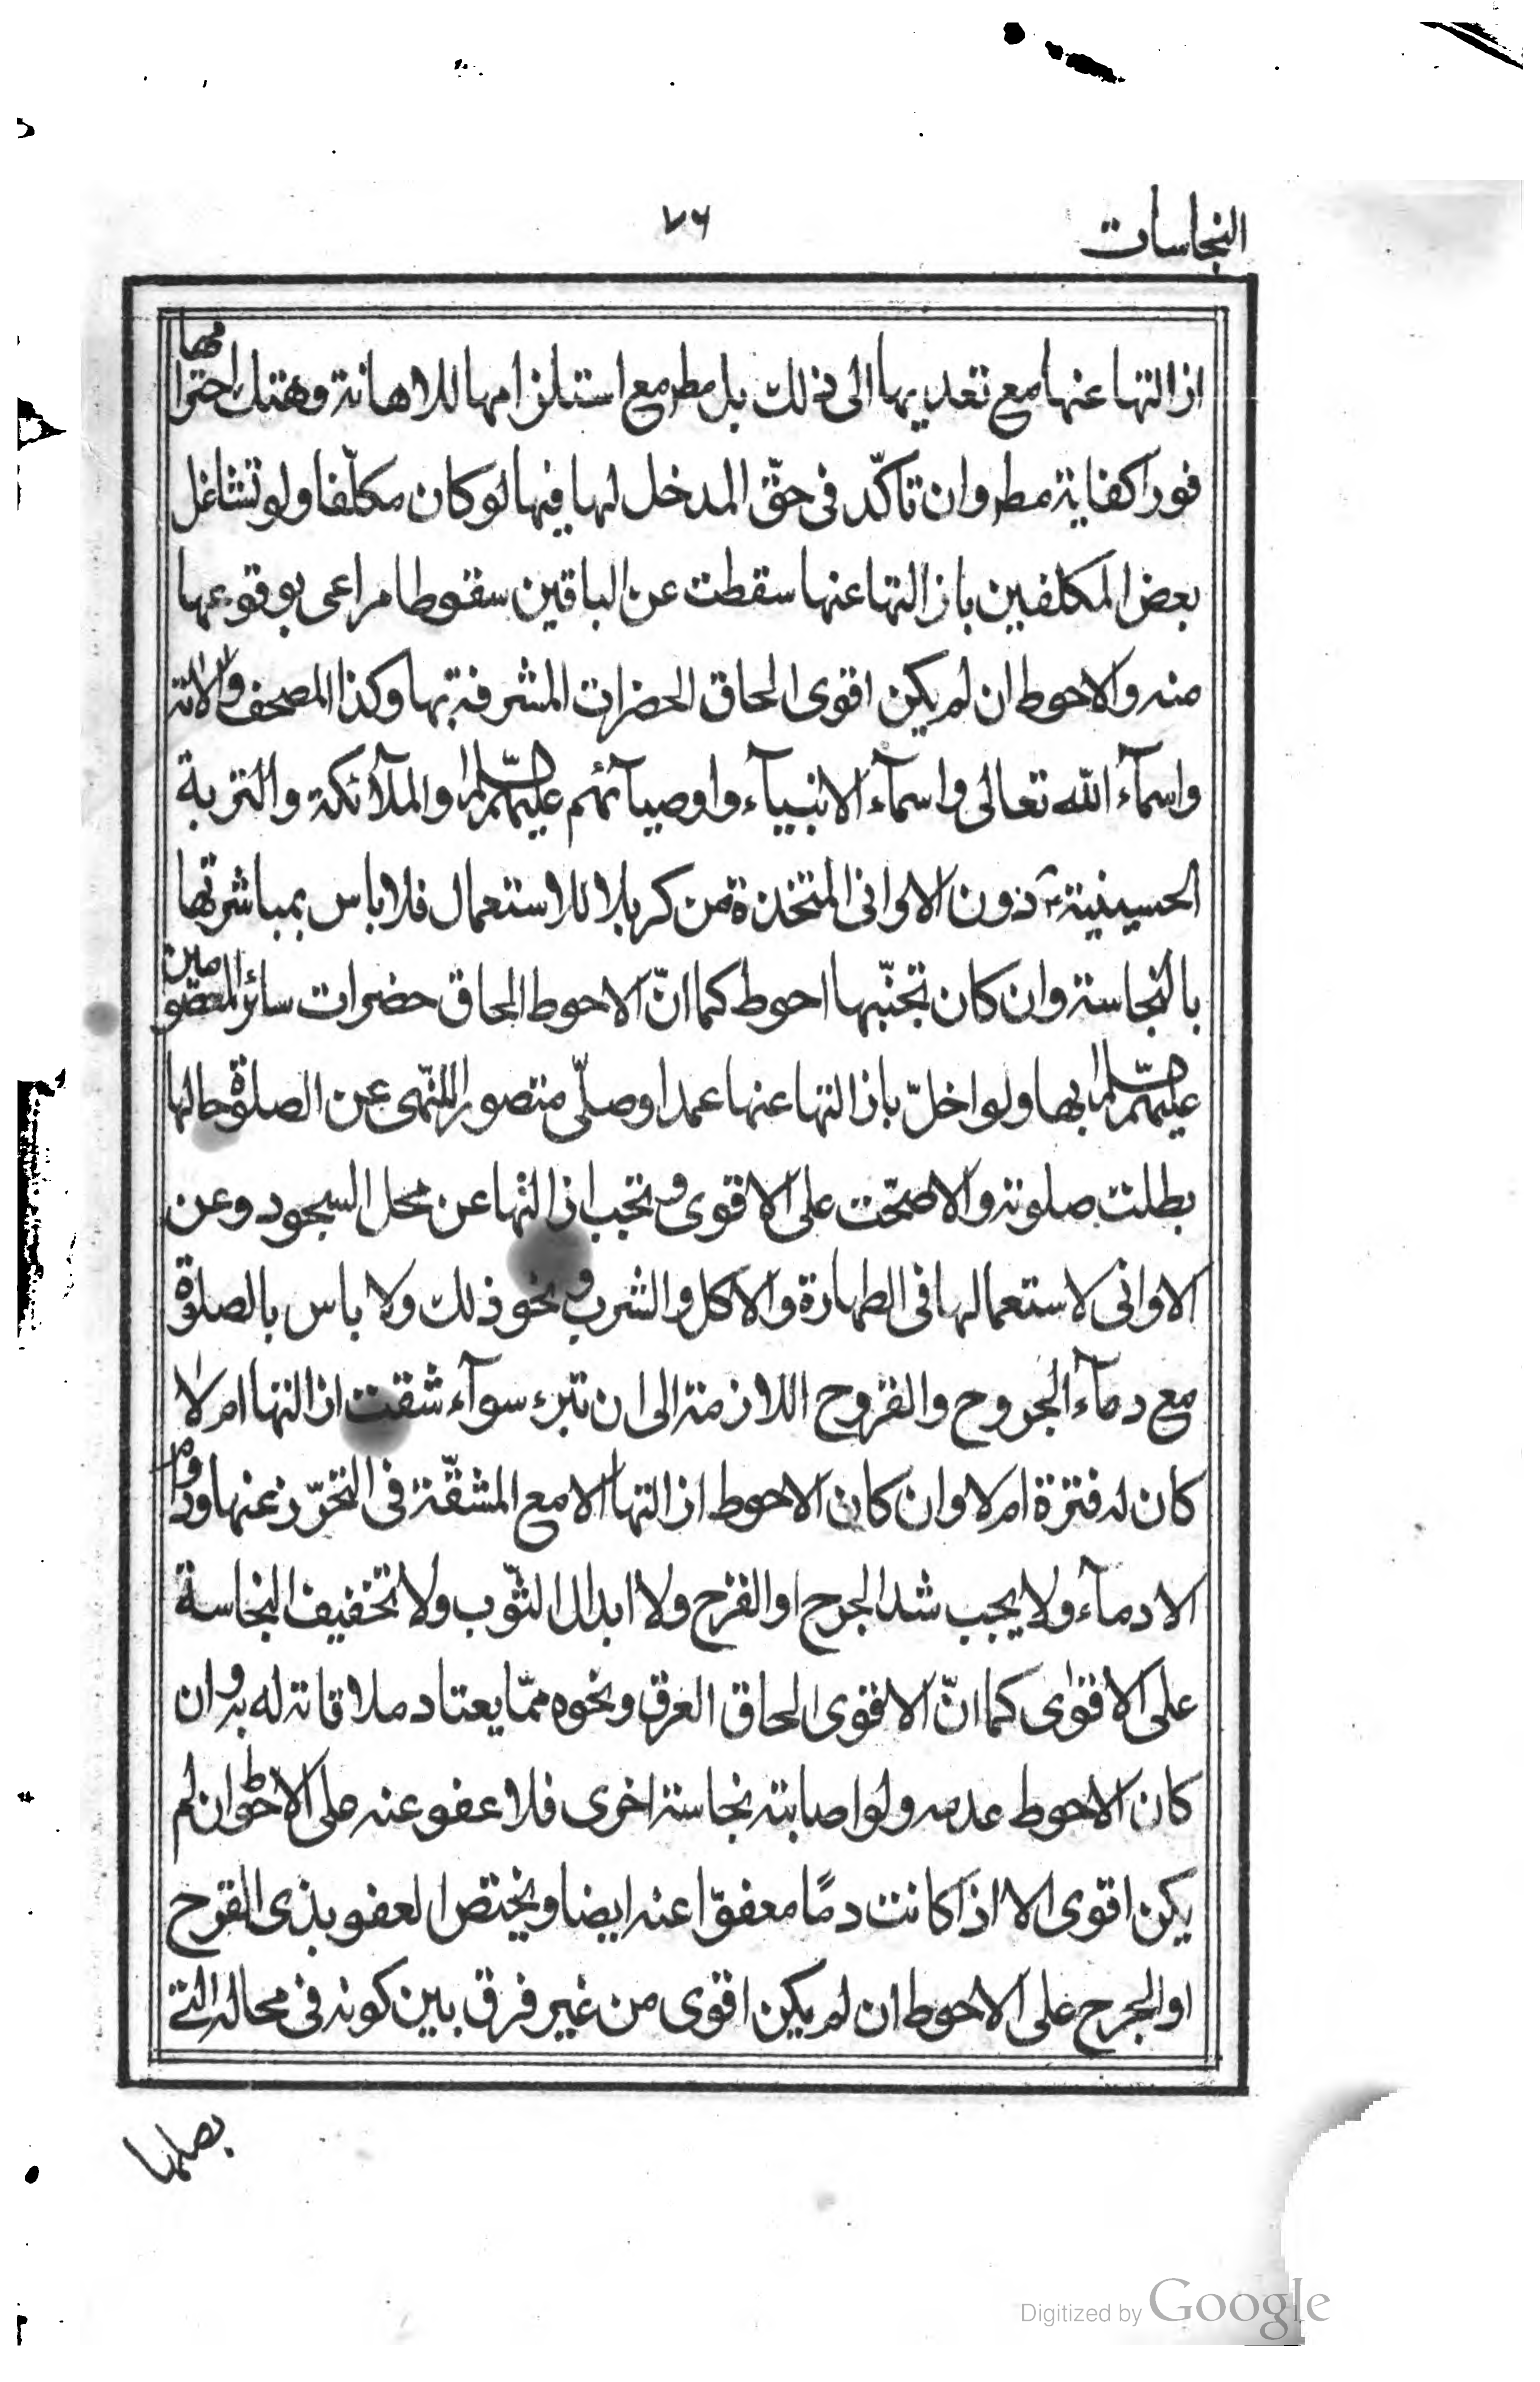 النجاسات
٧٦
ازالتها عنها مع تعديها الى ذلك بل مطر مع استلزامها للاهانة وهتك احترامها
فورا كفاية مطر وان تاكّد فى حقّ المدخل لها فيها لو كان مكلّفا ولو تشاغل
بعض المكلفين بازالتها عنها سقطت عن الباقين سقوطا مراعى بوقوعها
منه والاحوط ان لم يكن اقوى الحاق الحضرات المشرفة بها وكذا المصحف والاته
واسمآء الله تعالى واسمآء الانبيآء واوصيآئهم عليهم السّلم والملآئكة والتربة
الحسينية دون الاوانى المتخذة من كربلا للاستعمال فلا باس بمباشرتها
بالنجاسة وان كان تجنّبها احوط كما انّ الاحوط الحاق حضرات سائر المعصومين
عليهم السّلم بها ولو اخلّ بازالتها عنها عمدا وصلّى متصورا للنهى عن الصلوة حالها
بطلت صلوته والا صحّت على الاقوى وتجب ازالتها عن محل السجود وعن
الاوانى لاستعمالها فى الطهارة والاكل والشرب ونحو ذلك ولا باس بالصلوة
مع دمآء الجروح والقروح اللازمة الى ان تبرء سوآء شقت ازالتها ام لا
كان له فترة ام لا وان كان الاحوط ازالتها الا مع المشقّة فى التحرّز عنها ودوام
الادمآء ولا يجب شد الجرح او القرح ولا ابدال الثّوب ولا تخفيف النجاسة
على الاقوٰى كما انّ الاقوى الحاق العرق ونحوه ممّا يعتاد ملاقاته له به وان
كان الاحوط عدمه ولو اصابته نجاسة اخرى فلا عفو عنه على الاحوط ان لم
يكن اقوى الا اذا كانت دمًا معفوّا عنه ايضا ويختص العفو بذى القرح
او الجرح على الاحوط ان لم يكن اقوى من غير فرق بين كونه فى محاله التى
Digitized by Google